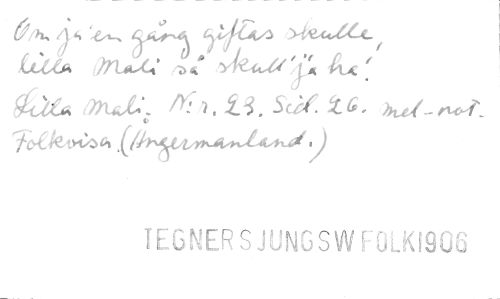 Om ja'en gång giftas skulle,
lilla Mali så skull' ja ha'.
Lilla Mali. N:r. 23. Sid. 26. mel-not.
Folkvisa. (Ångermanland.)
TEGNERSJUNGSWFOLK1906